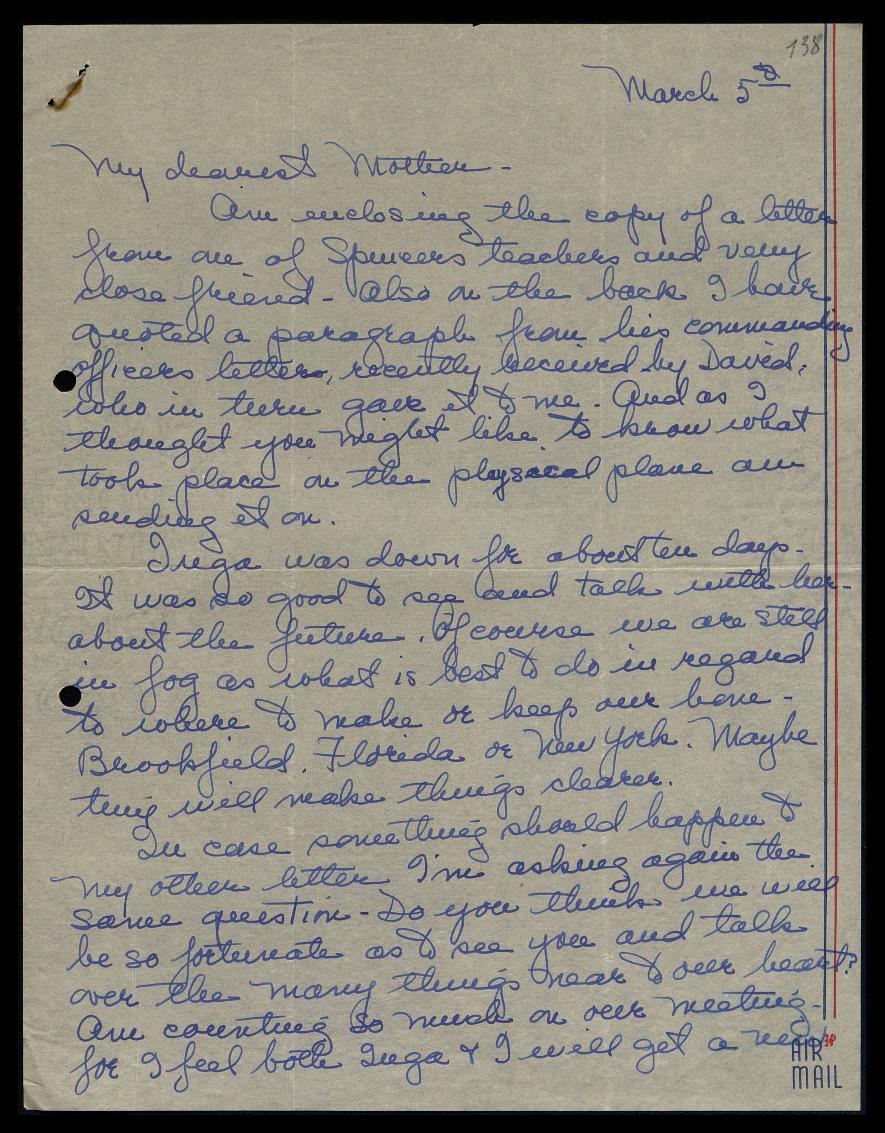 138
March 5th
My dearest Mother -
Am enclosing the copy of a letter
from one of Spencers teachers and very
close friend - Also on the back I have
quoted a paragraph from his commanding
officers letter, recently received by David,
who in turn gave it to me. And as I
thought you might like to know what
took place on the physical plane am
sending it on.
Inga was down for about ten days -
It was so good to see and talk with her -
about the future. Of course we are still
in fog as what is best to do in regard
to where to make or keep our home -
Brookfield, Florida or New York. Maybe
time will make things clearer.
In case something should happen to
my other letter I'm asking again the
same question - Do you think we will
be so fortunate as to see you and talk
over the many things near to our heart?
Am counting so much on our meeting -
for I feel both Inga & I will get a new
AIR
MAIL